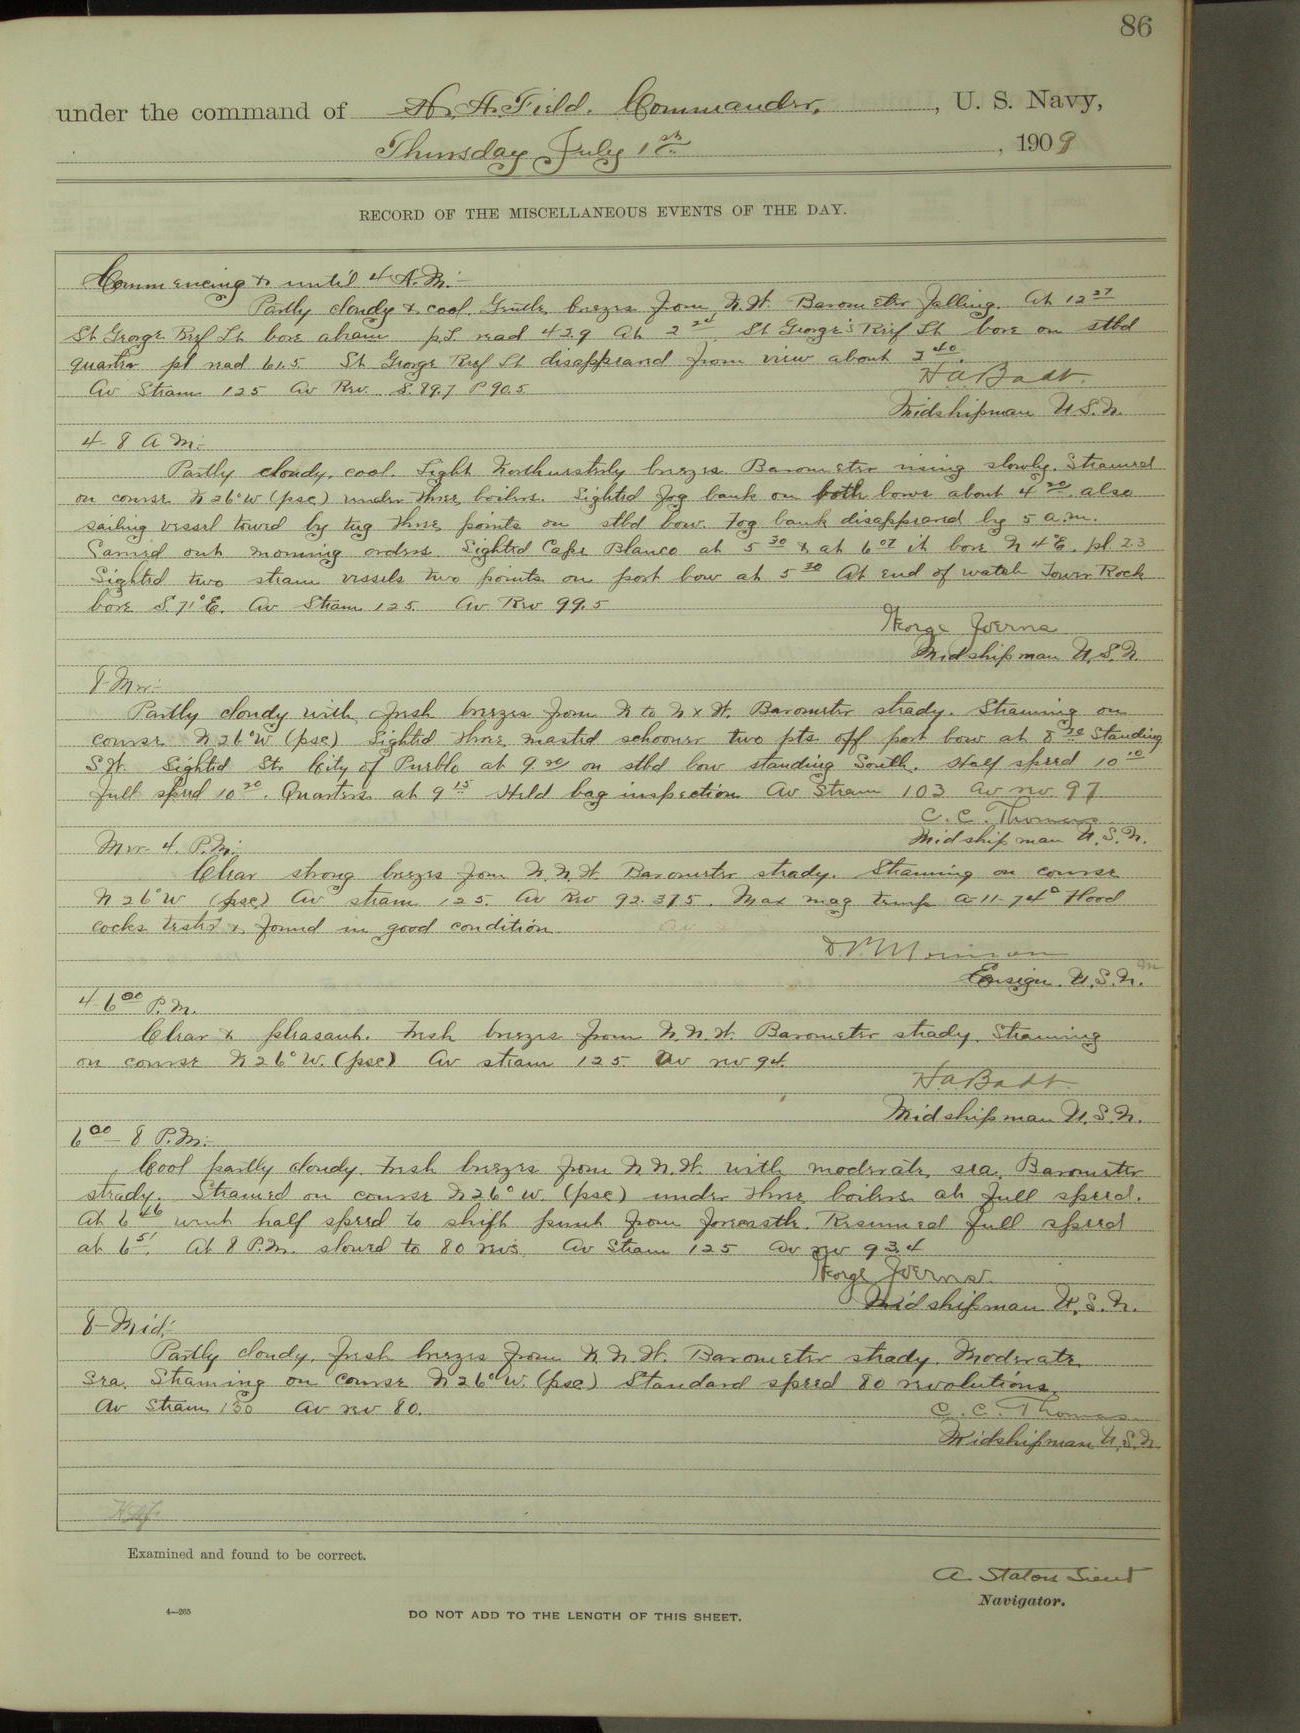 86
under the command of W. A. Field. Commander, , U. S. Navy,
Thursday July 1st , 1909
RECORD OF THE MISCELLANEOUS EVENTS OF THE DAY.
Commencing & until 4 A.M:-
Partly cloudy & cool. Gentle breezes from N.W. Barometer falling. At 12 27
St George Reef Lt bore abeam p.l. read 42.9 At 2 24 St George's Reef Lt bore on stbd
quarter pl read 61.5 St George Reef Lt disappeared from view about 2 40.
Av Steam 125 Av Rev. S. 89.7 P 90.5
H A Badt.
Midshipman U.S.N.
4-8 A M:-
Partly cloudy, cool. Light Northwesterly breezes. Barometer rising slowly. Steamed
on course N 26° W (psc) under three boilers. Sighted fog bank on both bows about 4 20 also
sailing vessel towed by tug three points on stbd bow. Fog bank disappeared by 5 a.m.
Carried out morning orders. Sighted Cape Blanco at 5 30 & at 6 07 it bore N 4° E. pl 2.3
Sighted two steam vessels two points on port bow at 5 30 At end of watch Tower Rock
bore S. 71° E. Av Steam 125. Av Rev 99.5
George Joerns
Midshipman U.S.N.
8-Mer:-
Partly cloudy with fresh breezes from N to N x W. Barometer steady. Steaming on
course N 26° W (psc) Sighted three masted schooner two pts off port bow at 8 20 Standing
S.W. Sighted Str. City of Pueblo at 9. on stbd bow standing South. Half speed 10 10
full speed 10 20. Quarters at 9 15 Held bag inspection Av Steam 103 Av rev. 97
C. C. Thomas
Midshipman U.S.N.
Mer- 4. P.M:-
Clear strong breezes from N.N.W. Barometer steady. Steaming on course
N 26° W (psc) Av steam 125. Av Rev 92.375. Max mag temp A-11-74° Flood
cocks tested & found in good condition.
D. P. Morrison
Ensign. U.S.N.
4-6 00 P.M.
Clear & pleasant. Fresh breezes from N.N.W. Barometer steady. Steaming
on course N 26° W. (psc) Av steam 125. Av rev 94.
H.A. Badt.
Midshipman U.S.N.
6 00 - 8 P.M:-
Cool partly cloudy. Fresh breezes from N.N.W. with moderate sea. Barometer
steady. Steamed on course N 26° W. (psc) under three boilers at full speed.
At 6 46 went half speed to shift punt from forecastle. Resumed full speed
at 6 51. At 8 P.M. slowed to 80 revs. Av Steam 125 Av rev 93.4
George Joerns.
Midshipman U.S.N.
8-Mid:-
Partly cloudy. Fresh breezes from N.N.W. Barometer steady. Moderate
sea. Steaming on course N 26° W. (psc) Standard speed 80 revolutions
Av Steam 130 Av rev 80.
C. C. Thomas
Midshipman U.S.N.
Examined and found to be correct.
A. Staton Lieut
Navigator.
4—265
DO NOT ADD TO THE LENGTH OF THIS SHEET.